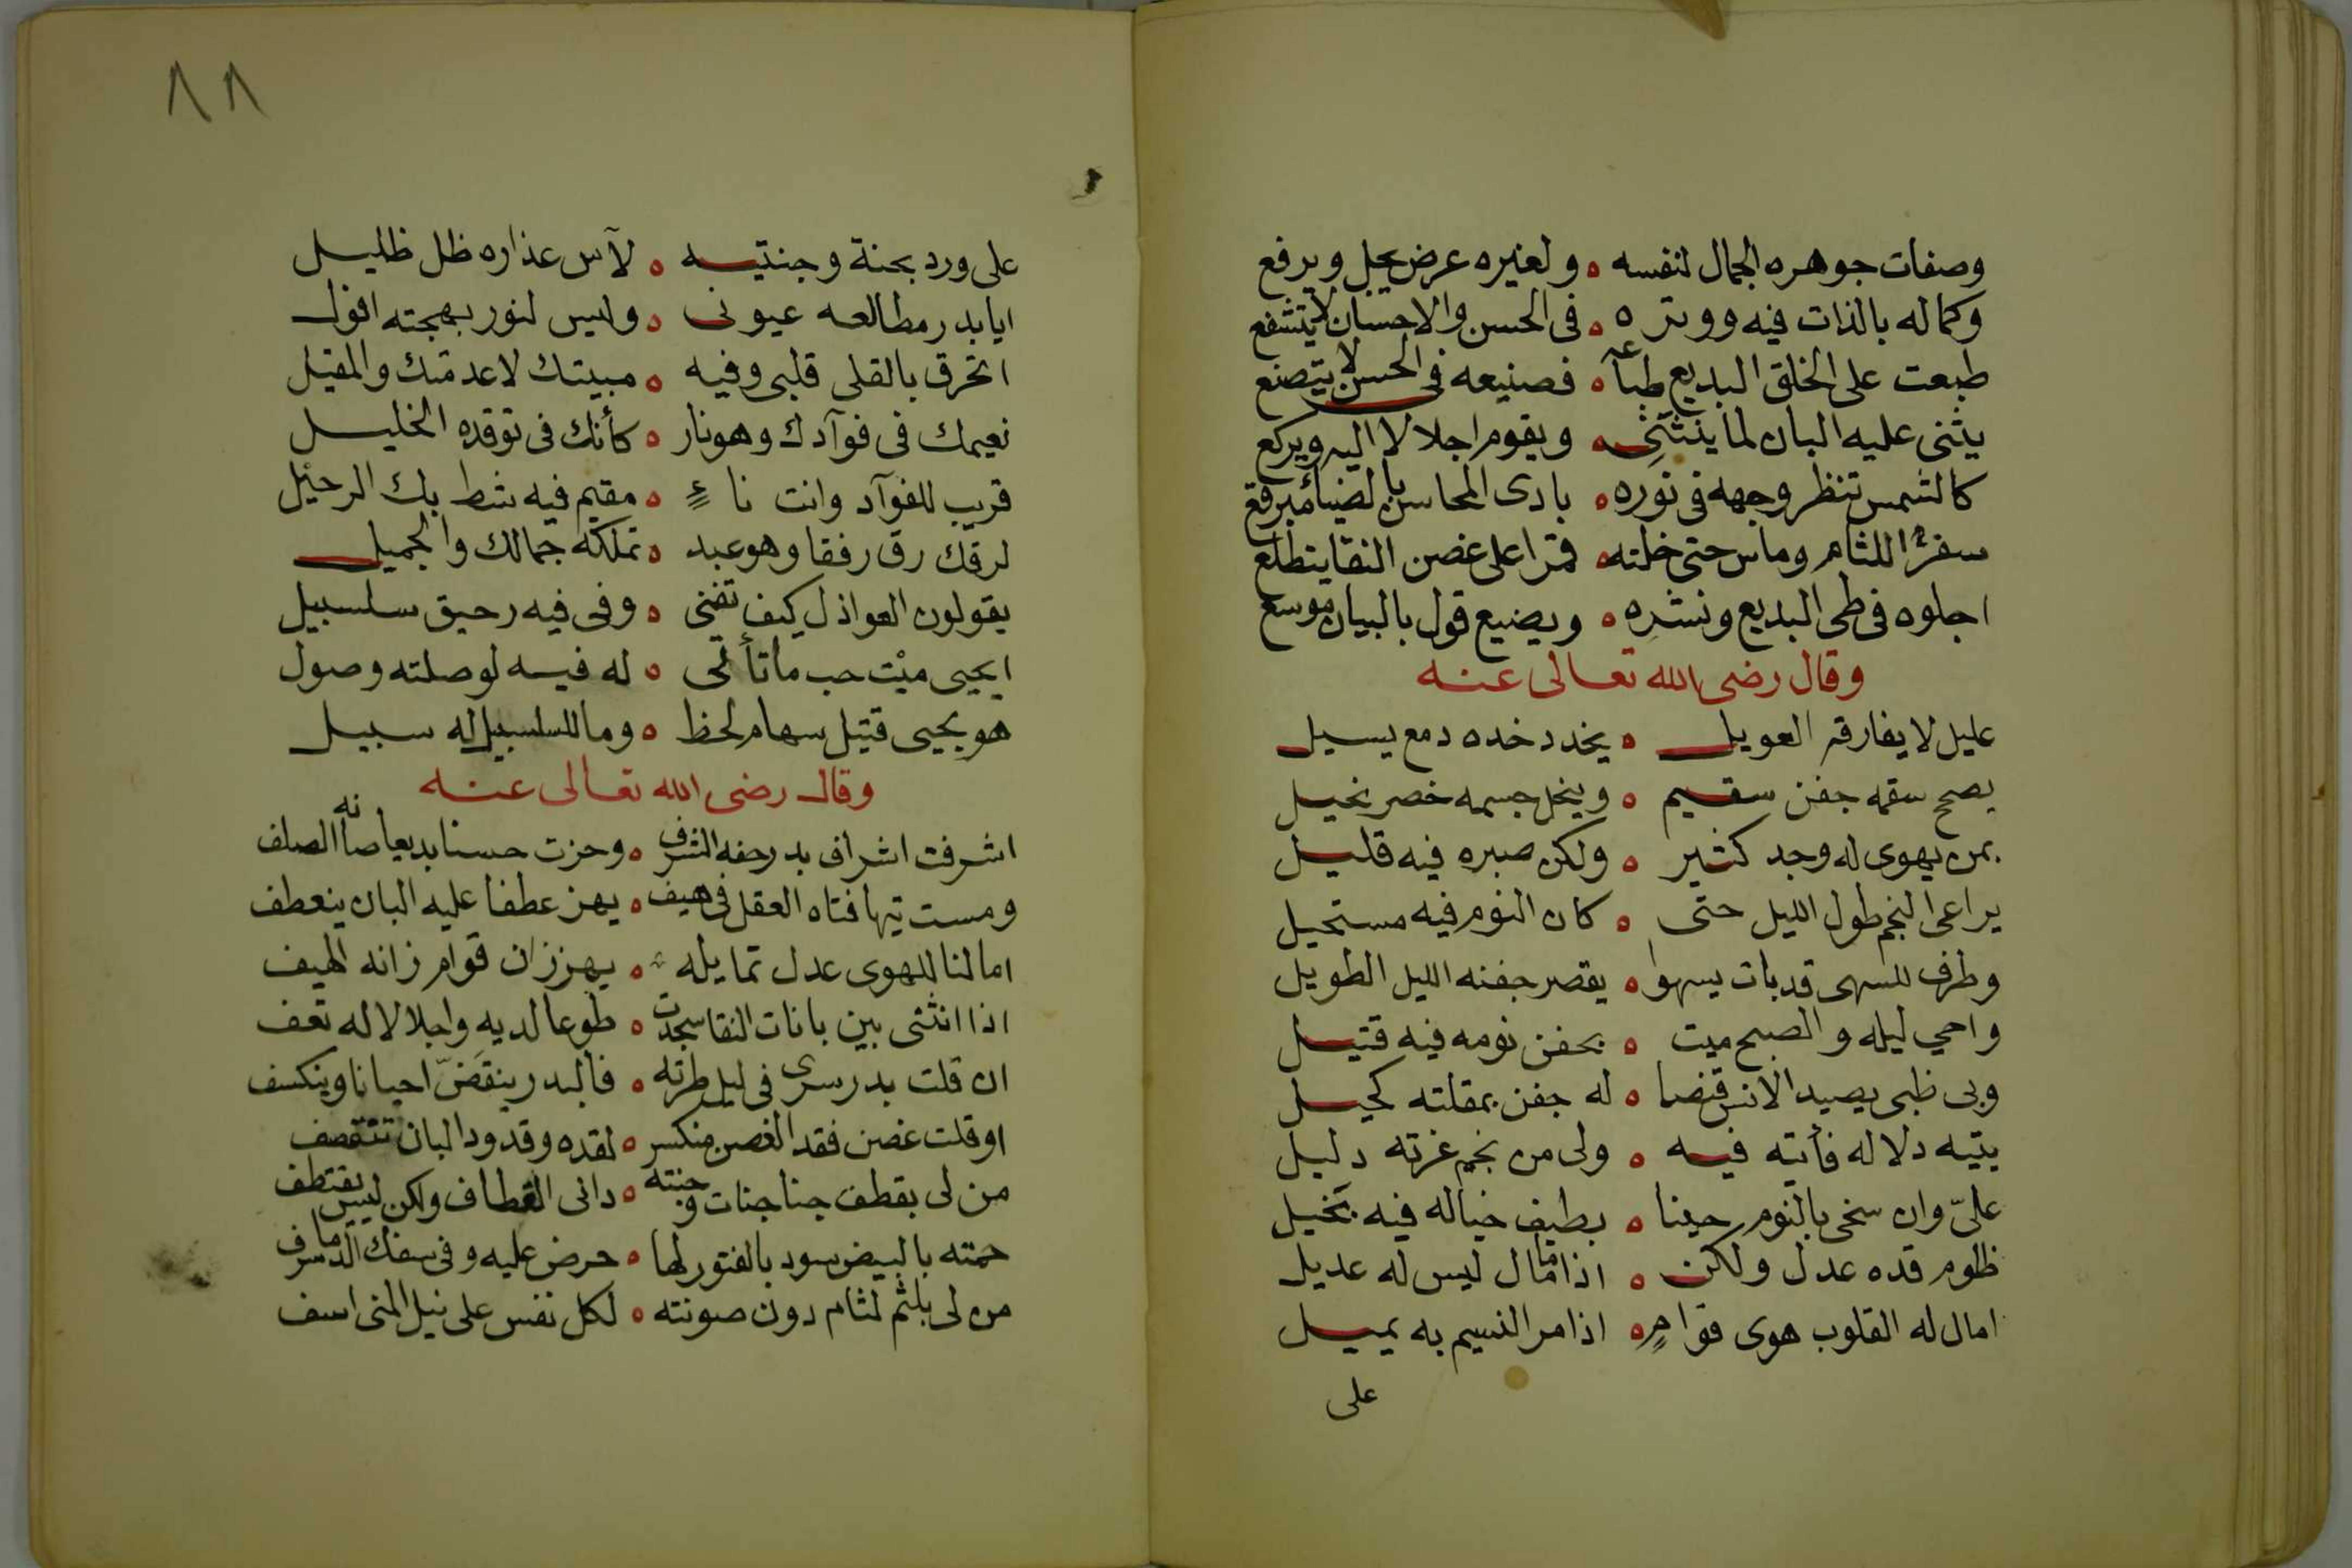 وصفات جوهره الجمال لنفسه ه ولغيره عرض يجل ويرفع
وكماله بالذات فيه ووتره ه فى الحسن والاحسان لايتشفع
طبعت على الخلق البديع طباعه ه فصنيعه فى الحسن لا يتصنع
يثنى عليه البان لما ينثنى ه ويقوم اجلالا اليه ويركع
كالشمس تنظر وجهه فى نوره ه بادى المحاسن بالضياء مبرقع
سفر اللثام وماس حتى خلته ه قمرا على غصن النقا يتطلع
اجلوه فى طى البديع ونشره ه ويضيع قول بالبيان موسع
وقال رضى الله تعالى عنه
عليل لا يفارقه العويل ه يخدد خده دمع يسيل
يصح سقمه جفن سقيم ه وينحل جسمه خصر نحيل
بمن يهوى له وجد كثير ه ولكن صبره فيه قليل
يراعى النجم طول الليل حتى ه كان النوم فيه مستحيل
وطرف للسهى قد بات يسهوا ه يقصر جفنه الليل الطويل
واحي ليله والصبح ميت ه بجفن نومه فيه قتيل
وبى ظبى يصيد الانس قنصا ه له جفن بمقلته كحيل
يتيه دلاله فأتيه فيه ه ولى من نجم غرته دليل
علىّ وان سخى بالنوم حينا ه بطيف خياله فيه بخيل
ظلوم قده عدل ولكن ه اذا ما مال ليس له عديل
امال له القلوب هوى قوامٍ ه اذا مر النسيم به يميل
على
٨٨
على ورد بجنة وجنتيه ه لآس عذاره ظل ظليل
ايا بدر مطالعه عيونى ه وليس لنور بهجته افول
اتحرق بالقلى قلبى وفيه ه مبيتك لاعدمتك والمقيل
نعيمك فى فوآدك وهو نار ه كأنك فى توقده الخليل
قريب للفوآد وانت ناءٍ ه مقيم فيه شط بك الرحيل
لرقك رق رفقا وهو عبد ه تملكه جمالك والجميل
يقولون العواذل كيف تفنى ه وفى فيه رحيق سلسبيل
ايحيى ميْت حب ماتأتى ه له فيه لوصلته وصول
هو يحيى قتيل سهام لحظ ه وما للسلسبيل له سبيل
وقال رضى الله تعالى عنه
اشرفت اشراف بدر حفه الشرف ه وحزت حسنا بديعا صانه الصلف
ومست تيها فتاه العقل فى هيف ه يهز عطفا عليه البان ينعطف
امالنا للهوى عدل تمايله ه يهززان قوام زانه الهيف
اذا انثنى بين بانات النقا سجدت ه طوعا لديه واجلالا له تقف
ان قلت بدر سرى فى ليل طرته ه فالبدر ينقضّ احيانا وينكسف
او قلت غصن فقد الغصن منكسر ه لقده وقدود البان تنقصف
من لى بقطف جنا جنات وجنته ه دانى القطاف ولكن ليس يقتطف
حمته بالبيض سود بالفتور لها ه حرض عليه وفى سفك الدما سرف
من لى بلثم لثام دون صونته ه لكل نفس على نيل المنى اسف